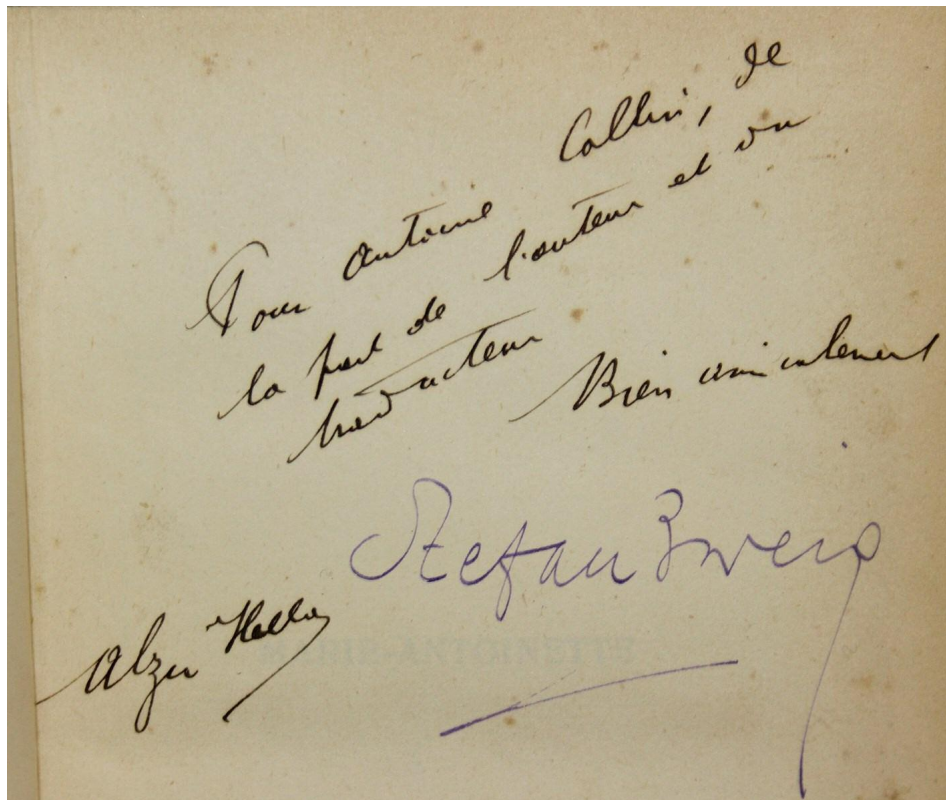 Pour Antoine Collin, de
la part de l'auteur et du
traducteur
Bien amicalement
Stefan Zweig
Alzir Hella
MARIE-ANTOINETTE